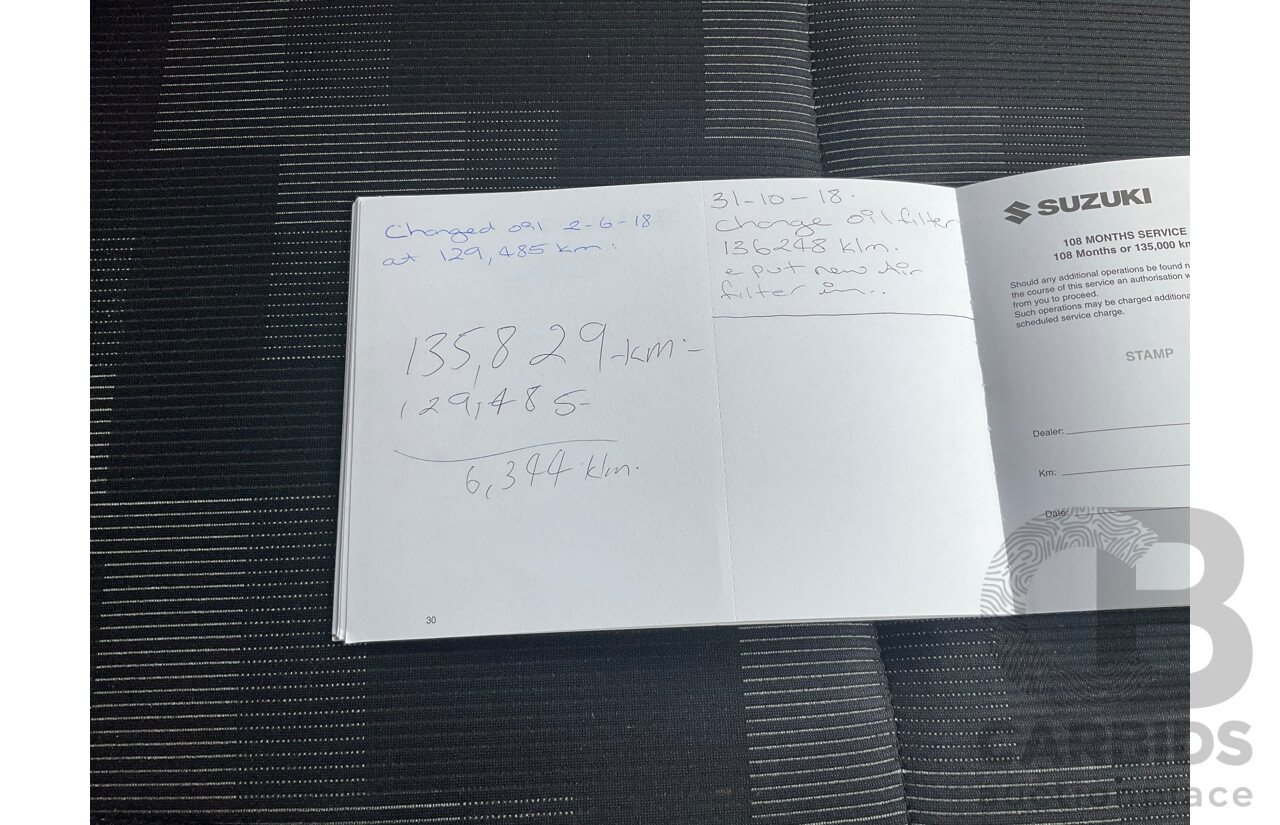 Changed oil 2-6-18
at 129,485 km.
135,829 km -
129,485
6,344 klm.
30
31-10-18.
Change oil filter
136248 klm.
& put new Air
filter in..
SUZUKI
108 MONTHS SERVICE
108 Months or 135,000 km
Should any additional operations be found n
the course of this service an authorisation w
from you to proceed.
Such operations may be charged additiona
scheduled service charge.
STAMP
Dealer:
Km:
Date:
CARBIDS